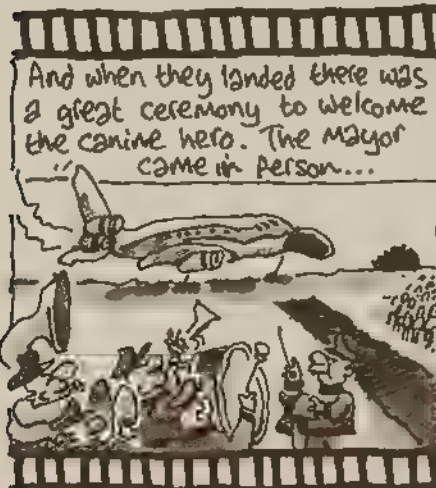 And when they landed there was
a great ceremony to welcome
the canine hero. The Mayor
came in person...